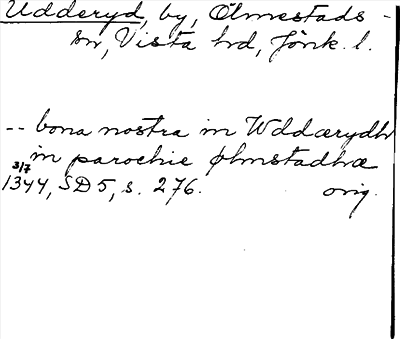 Udderyd, by, Ölmestads-
sn, Vista hd, Jönk. l.
-- bona nostra in Wddærydh
in parochie ølmstadhæ
3/7
1344, SD 5, s. 276. orig.